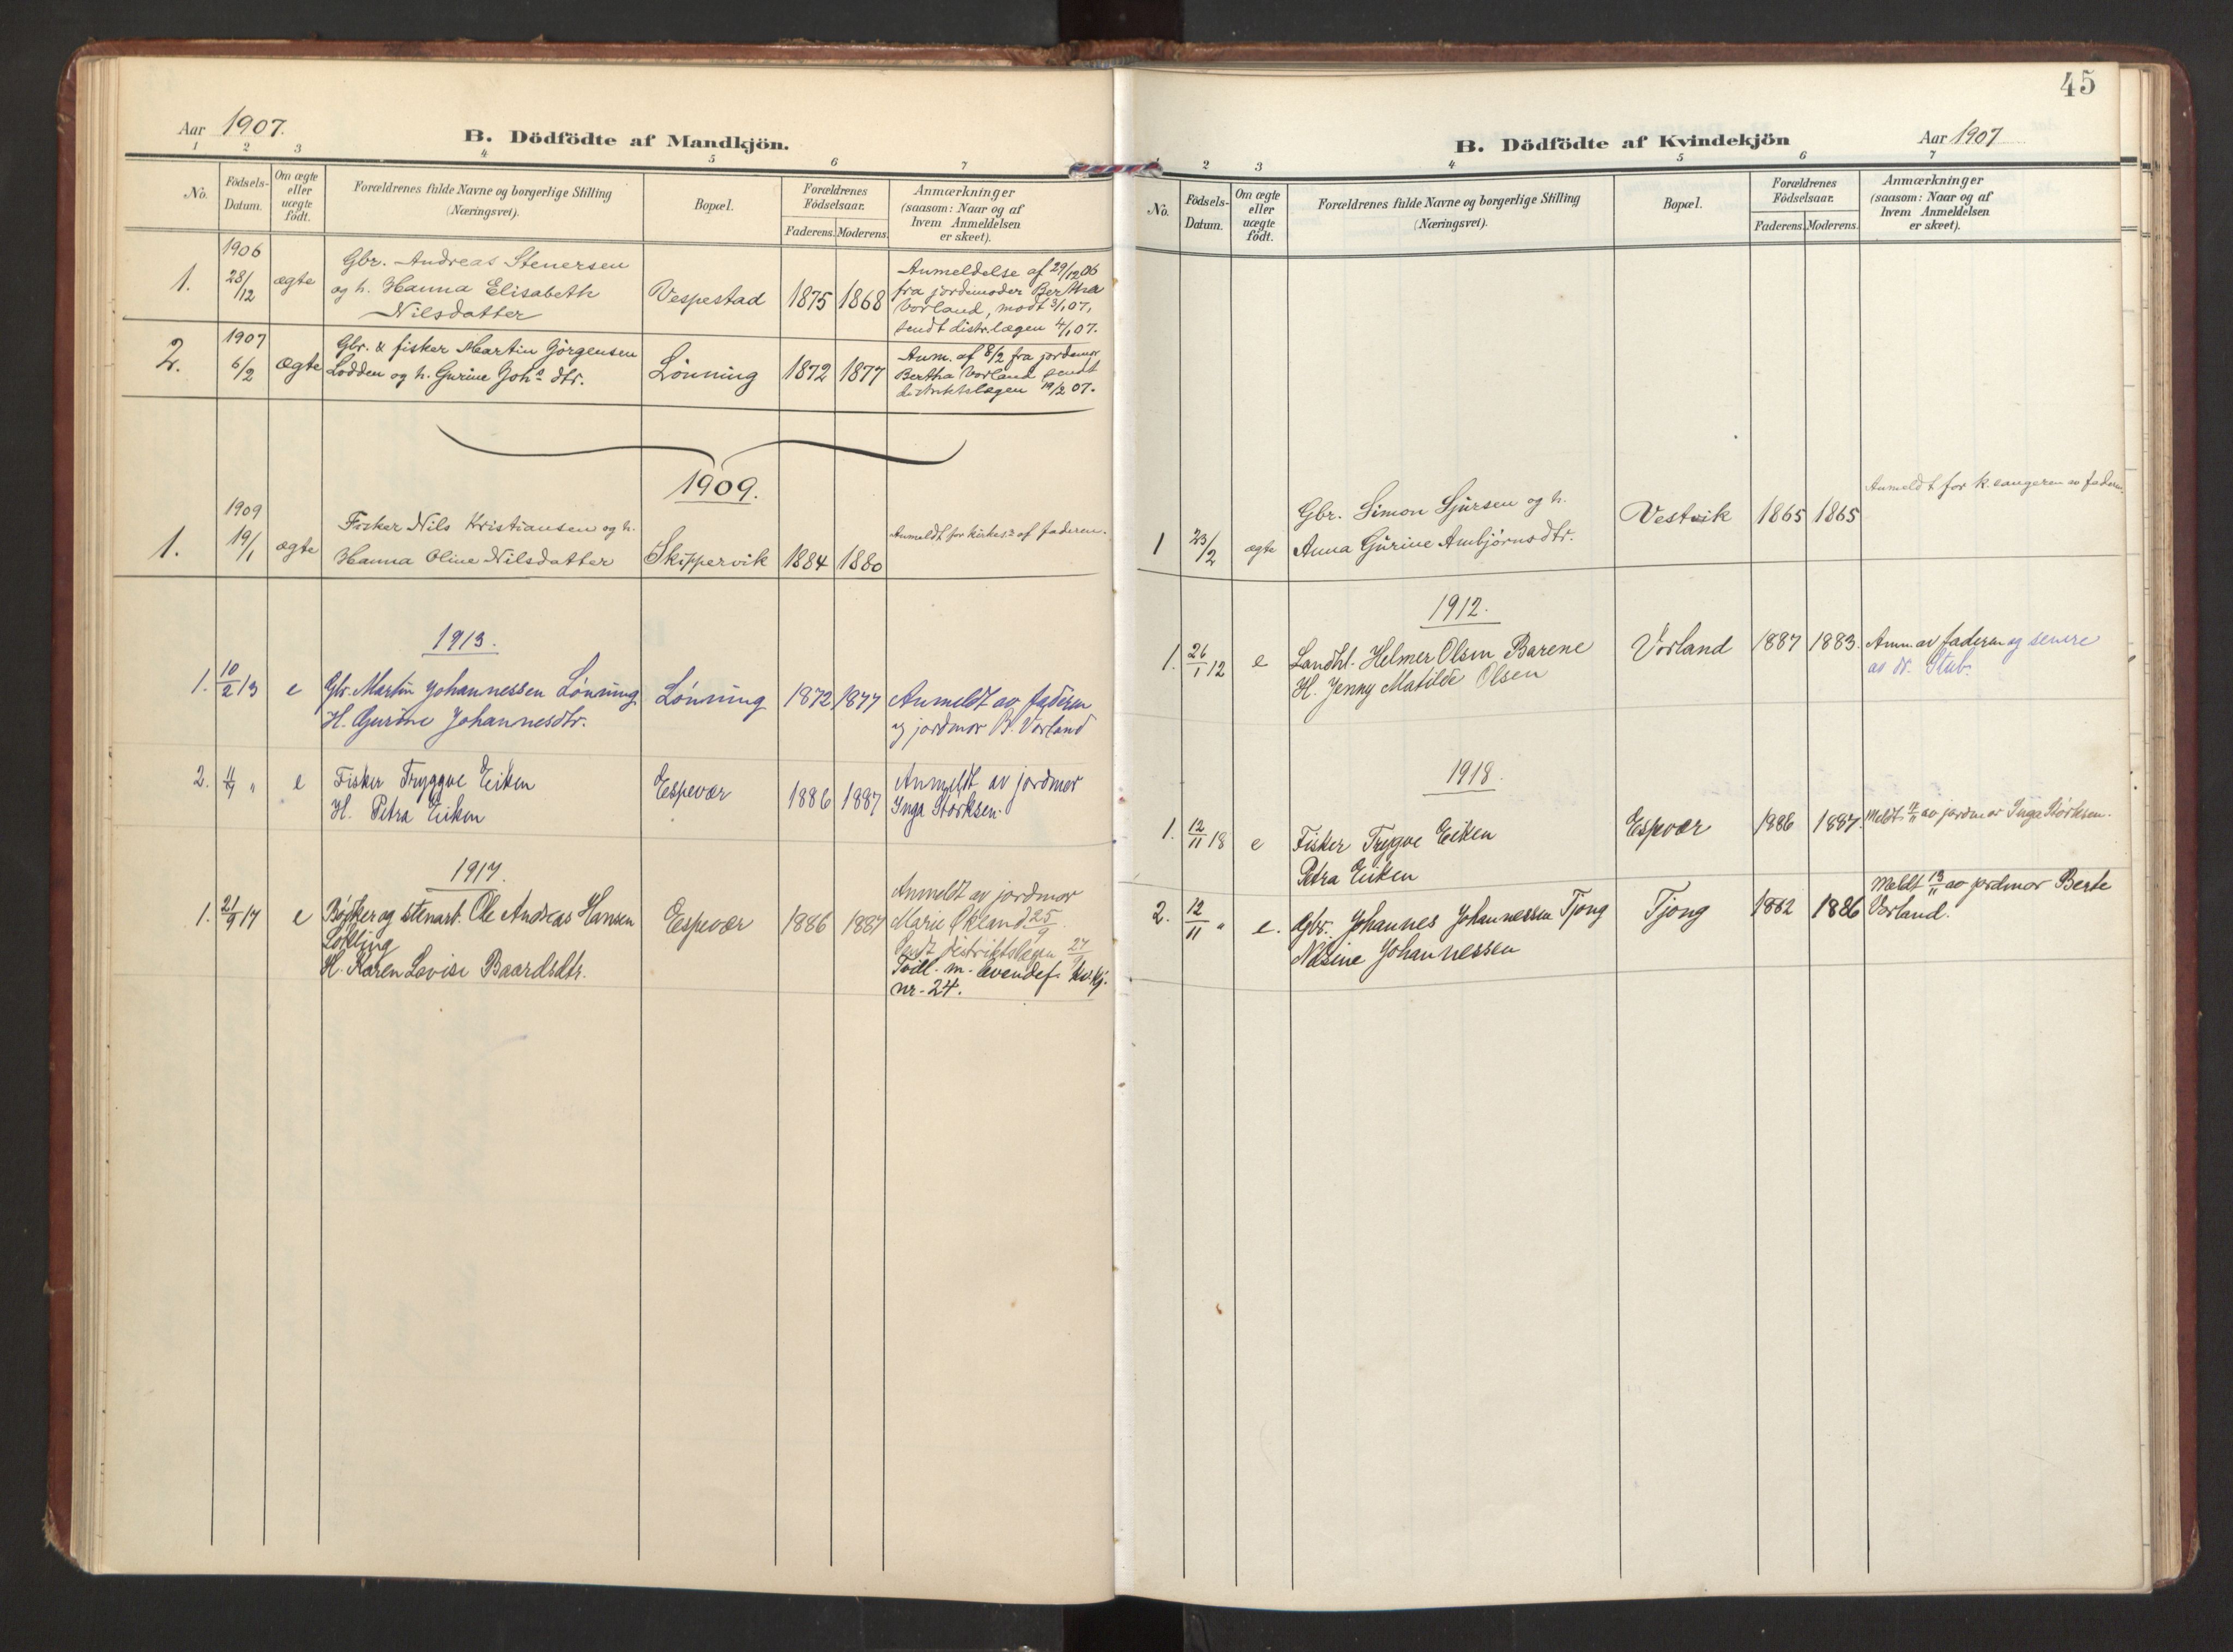 Aar 1907.
B. Dödfödte af Mandkjön.
1 2 3 4 5 6 7
No.
Födsels-Datum.
Om ægte eller uægte födt.
Forældrenes fulde Navne og borgerlige Stilling (Næringsvei).
Bopæl.
Forældrenes Födselsaar.
Faderens. Moderens.
Anmærkninger (saasom: Naar og af hvem Anmeldelsen er skeet).
1.
1906
28/12
ægte
Gbr. Andreas Stenersen
og h. Hanna Elisabeth
Nilsdatter
Vespestad
1875
1868
Anmeldelse af 29/12 06
fra jordemoder Bertha
Vorland, modt 3/1 07,
sendt distr.lægen 4/1 07.
2.
1907
6/2
ægte
Gbr. & fisker Martin Görgensen
Lodden og h. Gurine Johs dtr.
Lönning
1872
1877
Anm. af 8/2 fra jordemor
Bertha Vorland sendt
distriktslægen 19/2 07.
1909.
1.
1909
19/1
ægte
Fisker Nils Kristiansen og h.
Hanna Oline Nilsdatter
Skippervik
1884
1880
Anmeldt for kirkes. af faderen.
1913.
1.
10/2 13
e
Gbr. Martin Johannessen Lönning
H. Gurine Johannesdtr.
Lönning
1872
1877
Anmeldt av faderen
og jordmor B. Vorland
2.
"
e
Fisker Tryggve Eiken
H. Petra Eiken
Espevær
1886
1887
Anmeldt av jordmor
Inga Störksen.
1917.
1.
21/9 17
e
Bøkker og stenarb. Ole Andreas Hansen
Løkling
H. Karen Lovise Baardsdtr.
Espevær
1886
1887
Anmeldt av jordmor
Marie Økland 25/9.
Sendt distriktslægen 27/9
Tvill. m. levendef. kv.kj.
nr. 24.
45
B. Dödfödte af Kvindekjön
Aar 1907
1 2 3 4 5 6 7
No.
Födsels-Datum.
Om ægte eller uægte födt.
Forældrenes fulde Navne og borgerlige Stilling (Næringsvei).
Bopæl.
Forældrenes Födselsaar.
Faderens. Moderens.
Anmærkninger (saasom: Naar og af hvem Anmeldelsen er skeet).
1
23/2
ægte
Gbr. Simon Sjursen og h.
Anna Gurine Ambjørnsdtr.
Vestvik
1865
1865
Anmeldt for k.sangeren av faderen.
1912.
1.
26/1 12
e
Landhl. Helmer Olsen Barene
H. Jenny Matilde Olsen
Vorland
1887
1883.
Anm. av faderen og senere
av dr. Stub.
1918.
1.
12/11 18
e
Fisker Trygve Eiken
Petra Eiken
Espevær
1886
1887.
Meldt av jordmor Inga Störksen.
2.
12/11 "
e.
Gbr. Johannes Johannessen Tjong
Nilsine Johannessen
Tjong
1882
1886
Meldt 13/11 av jordmor Berte
Vorland.